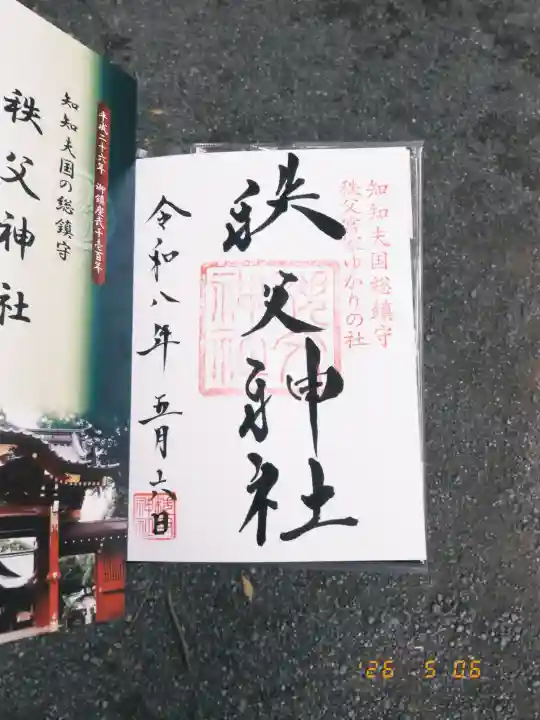 知知夫国総鎮守
秩父宮家ゆかりの社
秩父神社
令和八年 五月六日
平成二十六年 御鎮座弐千壱百年
知知夫国の総鎮守
秩父神社
'26 5 06